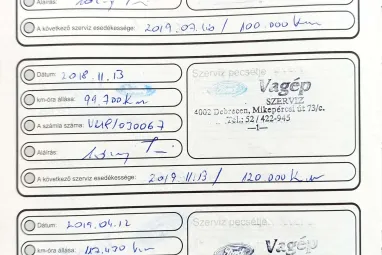 Aláírás:
A következő szerviz esedékessége: 2019.07.10 / 100.000 Km
Dátum: 2018.11.13
Szerviz pecsétje
km-óra állása: 99.700 Km
Vagép
SZERVIZ
4002 Debrecen, Mikepércsi út 73/c.
Tel.: 52 / 422-945
—1—
A számla száma: VMP/030067
Aláírás:
A következő szerviz esedékessége: 2019.11.13 / 120.000 Km
Dátum: 2019.04.12
Szerviz pecsétje
km-óra állása: Km
Vagép